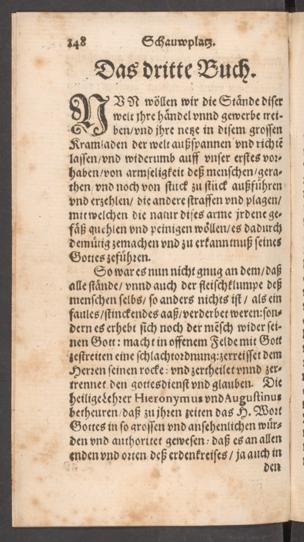 148 Schauwplatz.
Das dritte Buch.
NVN wöllen wir die Stände diser
welt ihre händel vnnd gewerbe trei-
ben/ vnd ihre netze in disem grossen
Kramladen der welt außspannen vnd richtē
lassen/ vnd widerumb auff vnser erstes vor-
haben/ von armseligkeit deß menschen/ gera-
then/ vnd noch von stuck zu stück außführen
vnd erzehlen/ die andere straffen vnd plagen/
mit welchen die natur dises arme jrdene ge-
fäß quehlen vnd peinigen wöllen/ es dadurch
demütig zemachen vnd zu erkanntnuß seines
Gottes zeführen.
So war es nun nicht gnug an dem/ daß
alle stände/ vnnd auch der fleischklumpe deß
menschen selbs/ so anders nichts ist/ als ein
faules/ stinckendes aaß/ verderbet weren: son-
dern es erhebt sich noch der mēsch wider sei-
nen Gott: macht in offenem Felde mit Gott
zestreiten eine schlachtordnung: zerreisset dem
Herren seinen rocke: vnd zertheilet vnnd zer-
trennet den gottesdienst vnd glauben. Die
heilige Lehrer Hieronymus vnd Augustinus
betheuren/ daß zu jhren zeiten das H. Wort
Gottes in so grossen vnd ansehenlichen wür-
den vnd authoritet gewesen: daß es an allen
enden vnd orten deß erdenkreises/ ja auch in
den